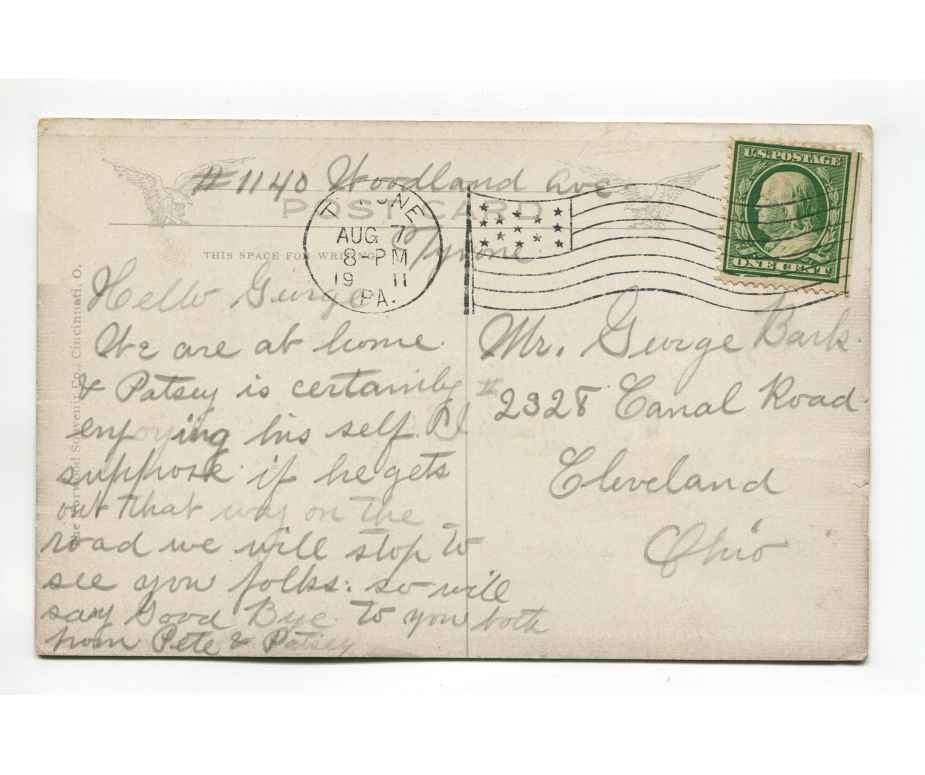 #1140 Woodland Ave.
Tyrone
POST CARD
THIS SPACE FOR WRITING
TYRONE
AUG 7
8-PM
19 11
PA.
U.S. POSTAGE
ONE CENT
Hello George
We are at home
& Patsey is certainly
enjoying his self. I
suppose if he gets
out that way on the
road we will stop to
see you folks. so will
say Good Bye to you both
from Pete & Patsey
Mr. George Bark.
# 2328 Canal Road
Cleveland
Ohio
The Norwood Souvenir Co., Cincinnati, O.